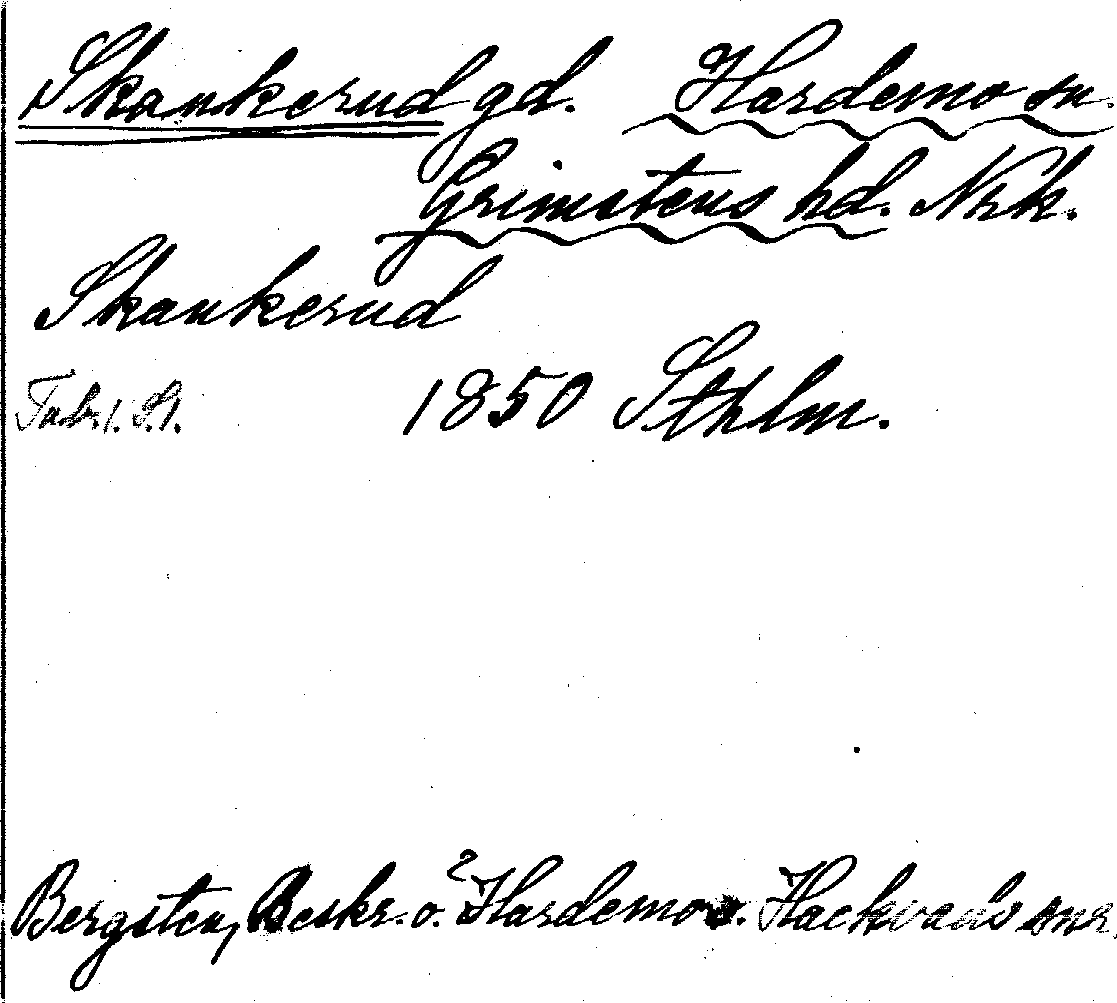 Skankerud gd. Hardemo sn.
Grimstens hd. Nrk.
Skankerud
Tab. 1. S. 1. 1850 Sthlm.
Bergsten, Beskr. o. Hardemo o. Hackvads snr.